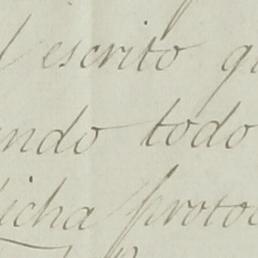 l escrito qu
ando todo
dicha protoc